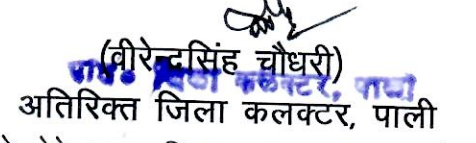 (वीरेन्द्रसिंह चौधरी)
कलक्टर, पाली
अतिरिक्त जिला कलक्टर, पाली